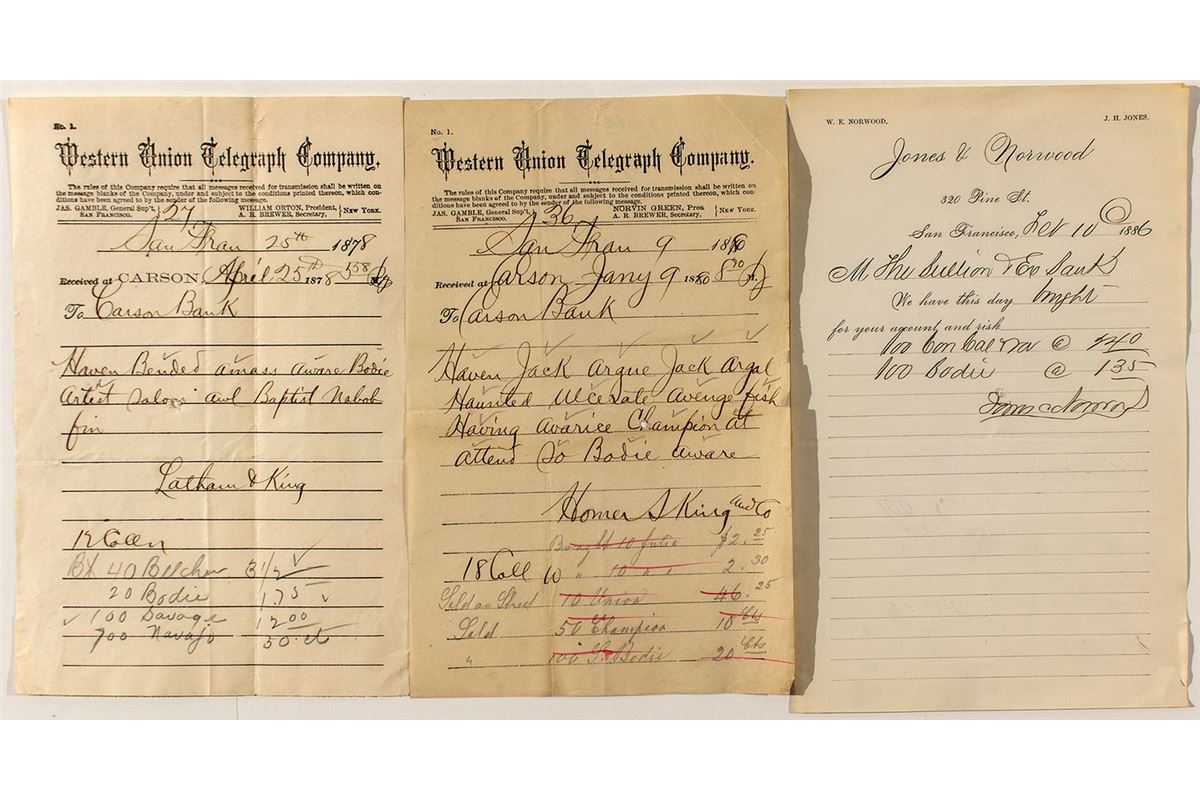 No. 1.
Western Union Telegraph Company.
The rules of this Company require that all messages received for transmission shall be written on
the message blanks of the Company, under and subject to the conditions printed thereon, which con-
ditions have been agreed to by the sender of the following message.
JAS. GAMBLE, General Sup't, WILLIAM ORTON, President,
SAN FRANCISCO. A. R. BREWER, Secretary, NEW YORK.
27
San Fran 25th 1878
Received at CARSON, April 25th 1878 558
To Carson Bank
Haven Bended amass aware Bodie
Artist Saloon awl Baptist Nabob
fin
Latham & King
12 Coll
BX 40 Belcher 3 1/2
20 Bodie 1.75
100 Savage 12 00
700 Navajo 50 ct
No. 1.
Western Union Telegraph Company.
The rules of this Company require that all messages received for transmission shall be written on
the message blanks of the Company, under and subject to the conditions printed thereon, which con-
ditions have been agreed to by the sender of the following message.
JAS. GAMBLE, General Sup't, NORVIN GREEN, Pres.
SAN FRANCISCO. A. R. BREWER, Secretary, NEW YORK.
36
San Fran 9 1880
Received at Carson Jany 9 1880
To Carson Bank
Haven Jack argue Jack argal
Haunted Ulcerate avenge fish
Having avarice Champion at
attend So Bodie aware
Homer S King and Co
Bought 10 Julia $2.25
18 Coll 10 " 10 " " 2.30
Sold on Street 10 Union 46.25
Sold 50 Champion 10 Cts
" 100 So Bodie 20 Cts
W. E. NORWOOD. J. H. JONES.
Jones & Norwood
320 Pine St.
San Francisco, Feb 10 1886
M The Bullion & Ex Bank
We have this day bought
for your account and risk
100 Con Cal Va @ 140
100 Bodie @ 135
Jones & Norwood